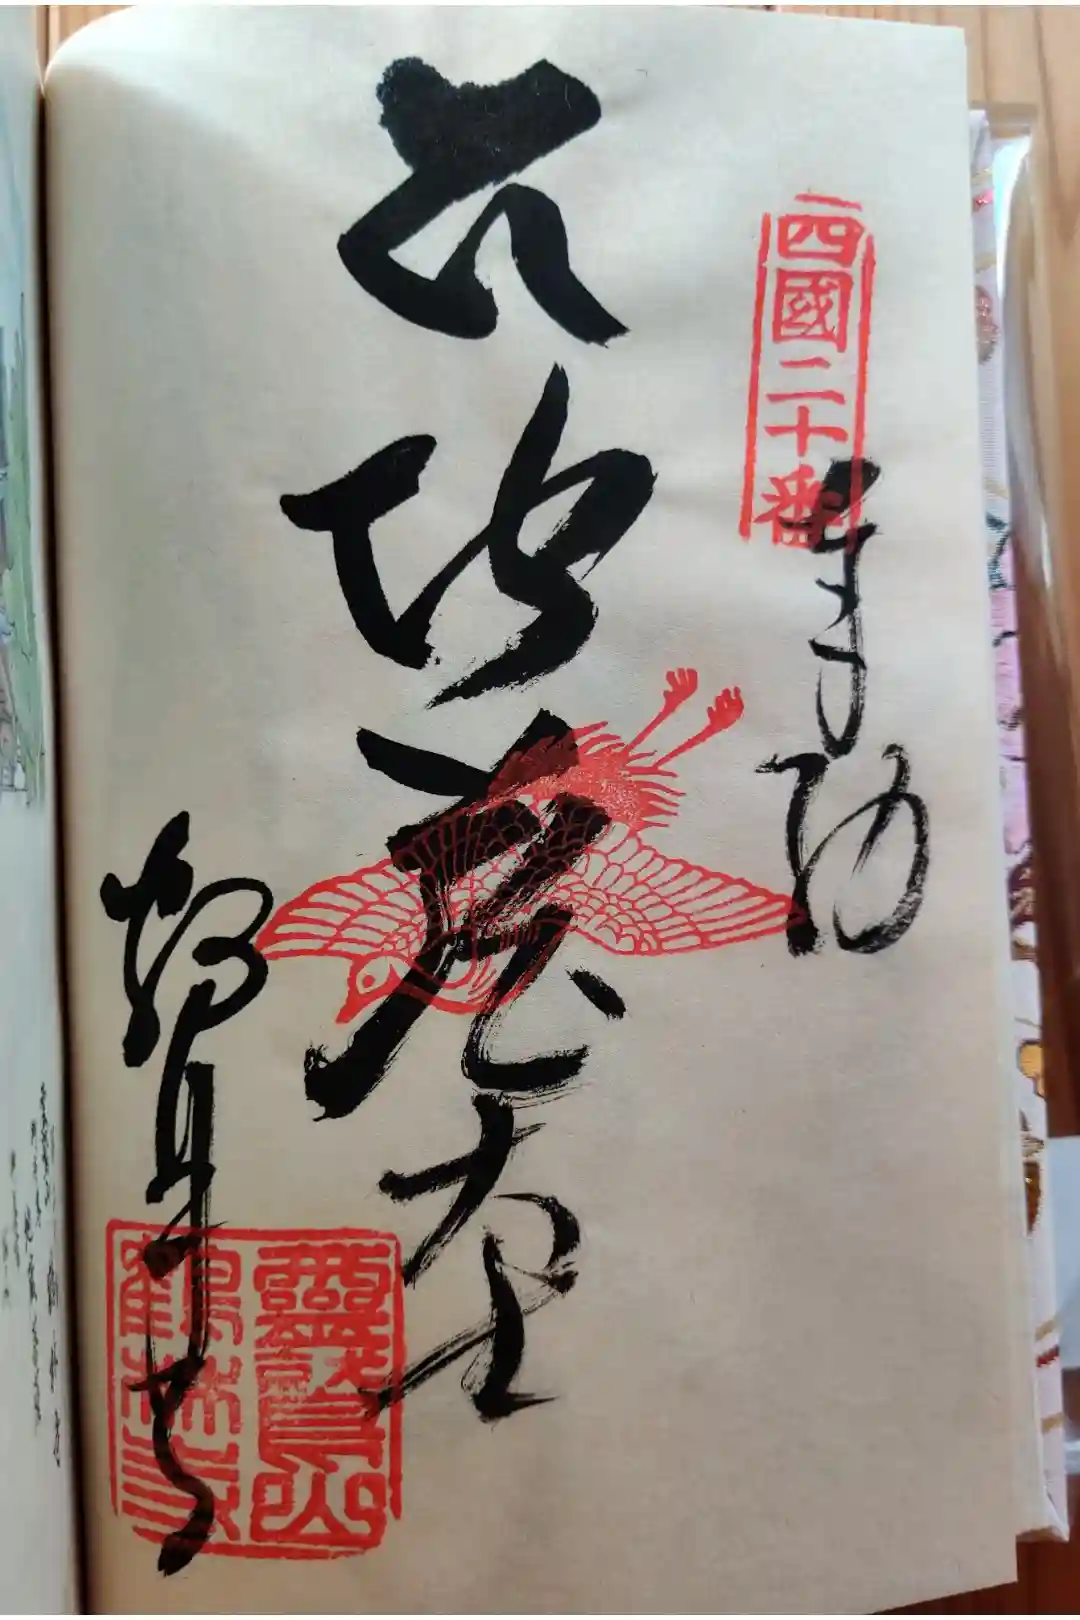 四國二十番
奉納
六地蔵
鶴林寺
靈鷲山
鶴林寺